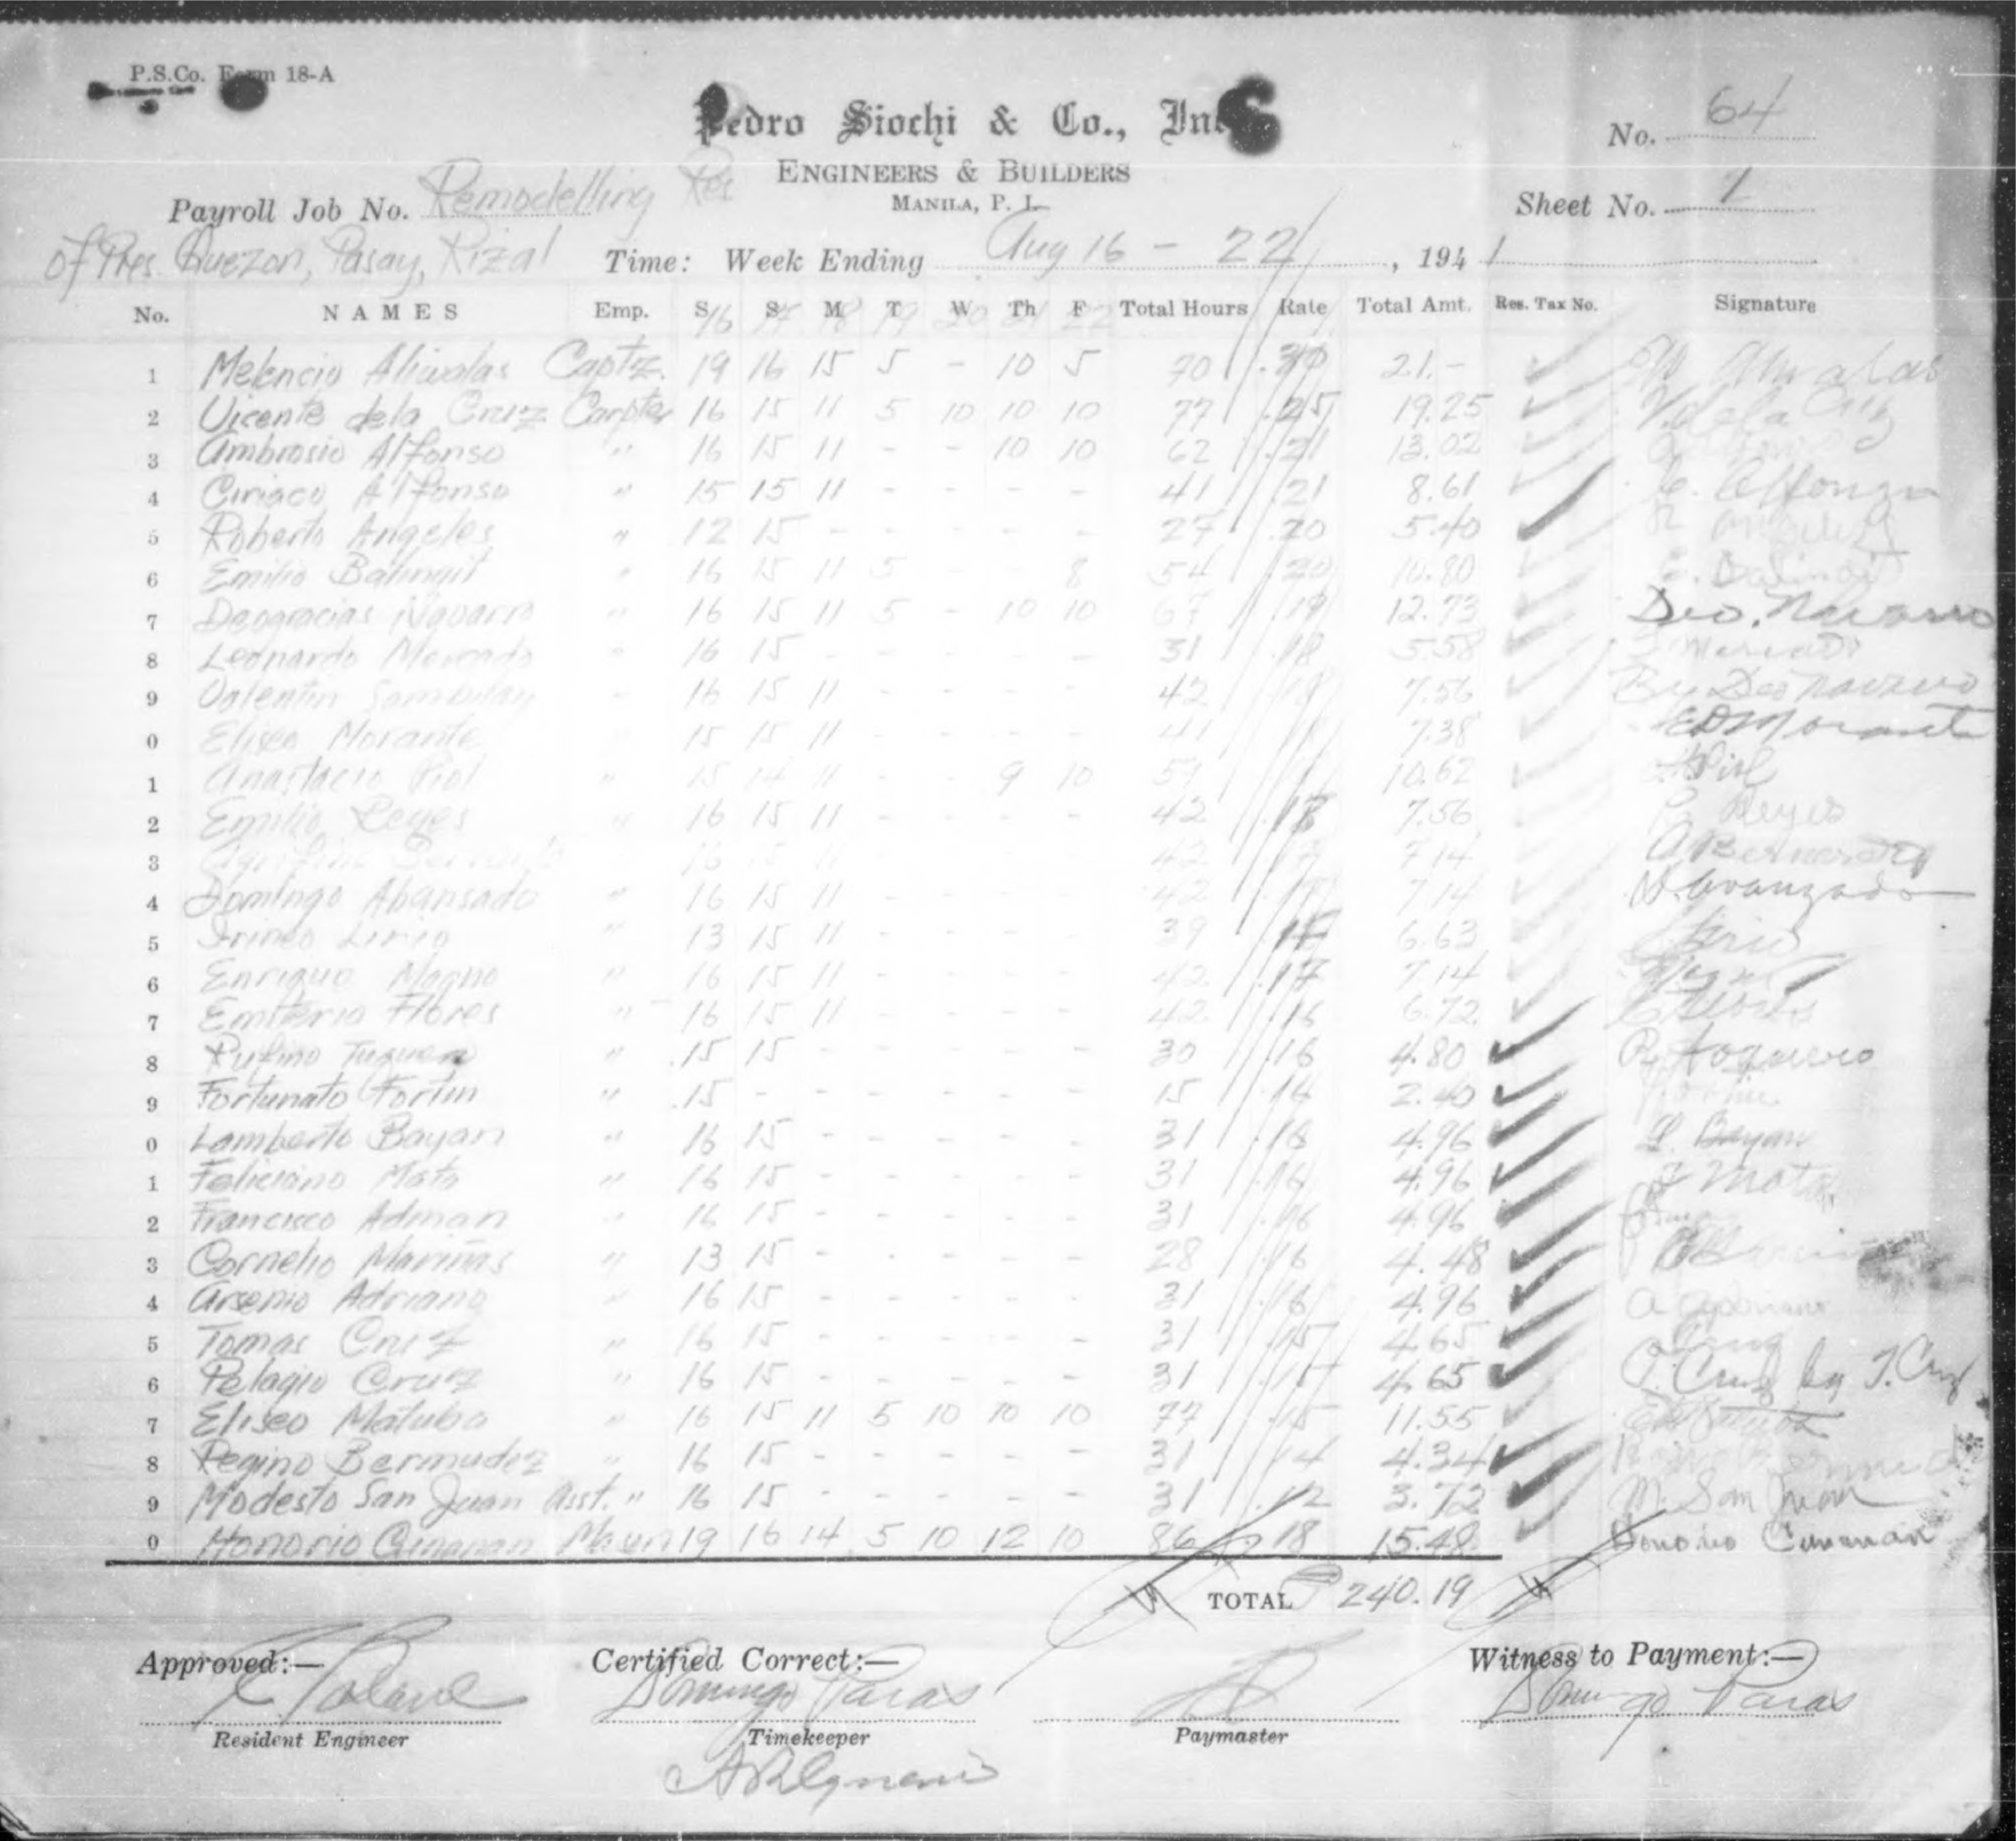 P.S.Co. Form 18-A
Pedro Siochi & Co., Inc.
No. 64
ENGINEERS & BUILDERS
Payroll Job No. Remodelling Res
MANILA, P. I.
Sheet No. 1
of Pres. Quezon, Pasay, Rizal Time: Week Ending Aug 16 - 22, 1941
No. NAMES Emp. S M T W Th F Total Hours Rate Total Amt. Res. Tax No. Signature
16 17 18 19 20 21 22
1 Melencio Aliwalas Captz. 19 16 15 5 - 10 5 70 .30 21.-
2 Vicente dela Cruz Carpter 16 15 11 5 10 10 10 77 .25 19.25 V. dela Cruz
3 Ambrosio Alfonso " 16 15 11 - - 10 10 62 .21 13.02
4 Ciriaco Alfonso " 15 15 11 - - - - 41 .21 8.61 C. Alfonso
5 Roberto Angeles " 12 15 - - - - - 27 .20 5.40 R. Angeles
6 Emilio Balingit " 16 15 11 5 - - 8 54 .20 10.80 E. Balingit
7 Deogracias Navarro " 16 15 11 5 - 10 10 67 .19 12.73 Deo. Navarro
8 Leonardo Mercado " 16 15 - - - - - 31 .18 5.58 Mercado
9 Valentin 16 15 11 - - - - 42 .18 7.56 By Deo Navarro
0 Eliseo Morante 15 15 11 - - - - 41 7.38 ED Morante
1 Anastacio Piol " 15 14 11 - - 9 10 59 10.62 A Piol
2 Emilio Reyes " 16 15 11 - - - - 42 .18 7.56 E. Reyes
3 16 15 11 - - - - 42 7.14 A Bernardo
4 Domingo Abansado " 16 15 11 - - - - 42 .17 7.14 D. Avanzado
5 Irineo Lirio " 13 15 11 - - - - 39 .17 6.63 Lirio
6 Enrique Magno " 16 15 11 - - - - 42 .17 7.14
7 Emiterio Flores " 16 15 11 - - - - 42 .16 6.72 E Flores
8 Rufino " 15 15 - - - - - 30 .16 4.80 R.
9 Fortunato Fortin " 15 - - - - - - 15 .16 2.40
0 Lamberto Bayan " 16 15 - - - - - 31 .16 4.96 L. Bayan
1 Feliciano Mata " 16 15 - - - - - 31 .16 4.96 F Mata
2 Francisco Adman " 16 15 - - - - - 31 .16 4.96
3 Cornelio Mariñas " 13 15 - - - - - 28 .16 4.48
4 Arsenio Adriano " 16 15 - - - - - 31 .16 4.96 A Adriano
5 Tomas Cruz " 16 15 - - - - - 31 .15 4.65
6 Pelagio Cruz " 16 15 - - - - - 31 .15 4.65 P. Cruz by T. Cruz
7 Eliseo Matuba " 16 15 11 5 10 10 10 77 .15 11.55
8 Regino Bermudez " 16 15 - - - - - 31 .14 4.34
9 Modesto San Juan Asst. " 16 15 - - - - - 31 .12 3.72 M. San Juan
0 Honorio Cunanan Mason 19 16 14 5 10 12 10 86 .18 15.48 Honorio Cunanan
TOTAL 240.19
Approved:— Certified Correct:— Witness to Payment:—
Domingo Paras Domingo Paras
Resident Engineer Timekeeper Paymaster